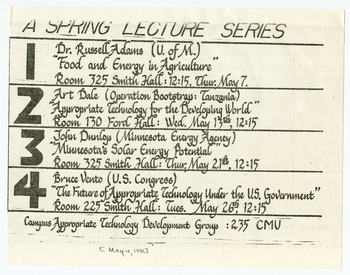 A SPRING LECTURE SERIES
1
Dr. Russell Adams (U. of M.)
"Food and Energy in Agriculture"
Room 325 Smith Hall: 12:15, Thur. May 7.
2
Art Dale (Operation Bootstrap: Tanzania)
"Appropriate Technology for the Developing World"
Room 130 Ford Hall: Wed. May 13th, 12:15
3
John Dunlop (Minnesota Energy Agency)
"Minnesota's Solar Energy Potential"
Room 325 Smith Hall: Thur, May 21st, 12:15
4
Bruce Vento (U.S. Congress)
"The Future of Appropriate Technology Under the U.S. Government"
Room 225 Smith Hall: Tues. May 26th, 12:15
Campus Appropriate Technology Development Group : 235 CMU
[May 4, 1981]